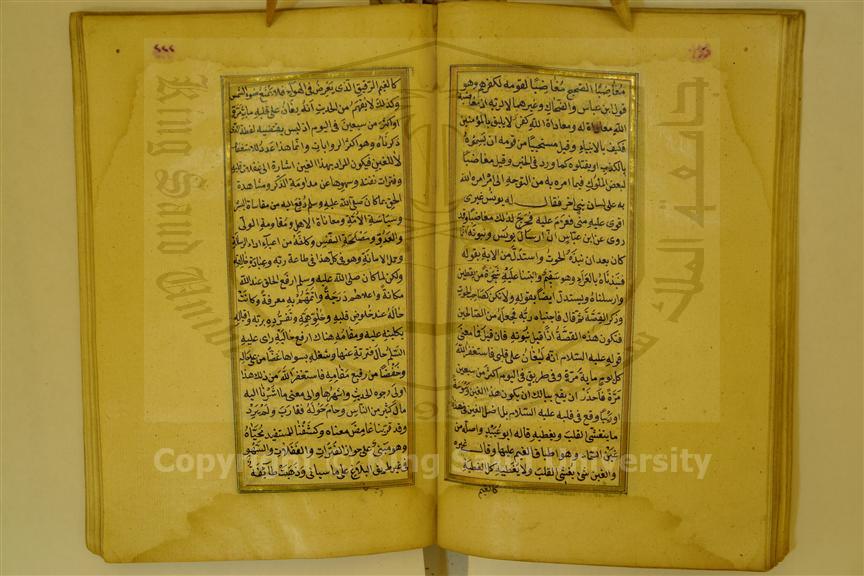 مُغاضِبًا الصحيح مُغاضبًا لقومه لكفرهم وهو
قول ابن عباس والضحاك وغيرهما لا لربه اذ مغاضبة
الله معاداة له ومعاداة الله كفر لا يليق بالمؤمنين
فكيف بالانبياء وقيل مستحييًا من قومه ان يَسِمُوهُ
بالكذب او يقتلوه كما ورد في الخبر وقيل مغاضبًا
لبعض الملوك فيما امره به من التوجه الى امر امره الله
به على لسان نبي اخر فقال له يونس غيري
اقوى عليه مني فعزم عليه فخرج لذلك مغاضبًا وقد
روي عن ابن عباس ان ارسال يونس ونبوته انما
كان بعد ان نبذه الحوت واستدل من الاية بقوله
فنبذناه بالعراء وهو سقيم وانبتنا عليه شجرة من يقطين
وارسلناه ويستدل ايضًا بقوله ولا تكن كصاحب الحوت
وذكر القصة ثم قال فاجتباه ربه فجعله من الصالحين
فتكون هذه القصة اذًا قبل نبوته فان قيل فما معنى
قوله عليه السلام انه ليغان على قلبي فاستغفر الله
كل يوم ماية مرة وفي طريق في اليوم اكثر من سبعين
مرة فاحذر ان يقع ببالك ان يكون هذا الغين وسوسة
او ريبًا وقع في قلبه عليه السلام بل اصل الغين في هذا
ما يتغشى القلب ويغطيه قاله ابو عبيد واصله من
غين السماء وهو اطباق الغيم عليها وقال غيره
والغين شيء يغشي القلب ولا يغطيه كل التغطية
كالغيم
كالغيم الرقيق الذي يعرض في الهواء فلا يمنع ضوء الشمس
وكذلك لا يفهم من الحديث انه يغان على قلبه ماية مرة
او اكثر من سبعين في اليوم اذ ليس يقتضيه لفظه الذي
ذكرناه وهو اكثر الروايات وانما هذا عدد للاستغفار
لا للغين فيكون المراد بهذا الغين اشارة الى غفلات قلبه
وفترات نفسه وسهوها عن مداومة الذكر ومشاهدة
الحق بما كان صلى الله عليه وسلم دفع اليه من مقاساة البشر
وسياسة الامة ومعاناة الاهل ومقاومة الولي
والعدو ومصلحة النفس وكلفه من اعباء اداء الرسالة
وحمل الامانة وهو في كل هذا في طاعة ربه وعبادة خالقه
ولكن لما كان صلى الله عليه وسلم ارفع الخلق عند الله
مكانة واعلاهم درجة واتمهم به معرفة وكانت
حاله عند خلوص قلبه وخلو همه وتفرده بربه واقباله
بكليته عليه ومقامه هناك ارفع حاليه راى عليه
السلم حال فترته عنها وشغله بسواها غضًا من علي حاله
وخفضًا من رفيع مقامه فاستغفر الله من ذلك هذا
اولى وجوه الحديث واشهرها والى معنى ما اشرنا اليه
مال كثير من الناس وحام حوله فقارب ولم يَرِد
وقد قربنا غامض معناه وكشفنا للمستفيد محياه
وهو مبني على جواز الفترات والغفلات والسهو
في غير طريق البلاغ على ما سياتي وذهبت طايفة
Copyright © King Saud University
King Saud University
جامعة الملك سعود